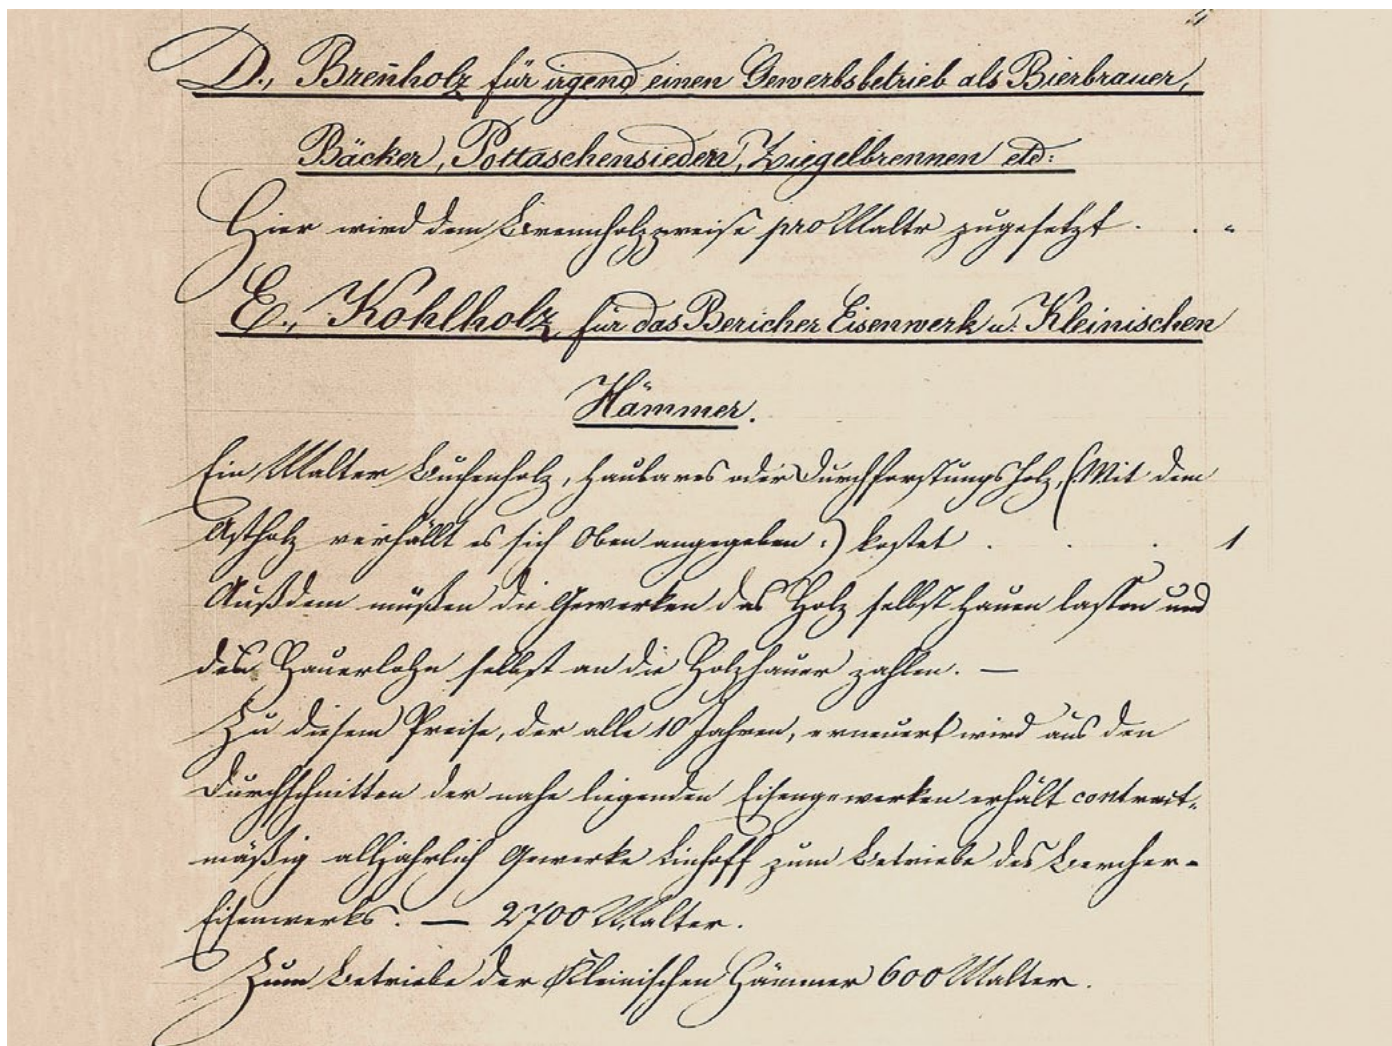 D., Breñholz für irgend einen Gewerbsbetrieb als Bierbrauer,
Bäcker, Pottaschensieden, Ziegelbrennen etc:
Hier wird dem Brennholzpreise pro Malter zugesetzt . . "
E., Kohlholz, für das Bericher Eisenwerk u: Kleinischen
Hämmer.
Ein Malter Buchenholz, haubares oder Durchforstungsholz, (: Mit dem
Astholz verhällt es sich Oben angegeben :) kostet . . . 1
Außdem müßen die Gewerken das Holz selbst hauen lassen und
das Hauerlohn selbst an die Holzhauer zahlen. —
Zu diesem Preise, der alle 10 Jahren, erneuert wird aus den
Durchschnitten der nahe liegenden Eisengewerken erhält contract-
mäßig alljährlich Gewerke Linhoff zum Betriebe des Bericher-
Eisenwerks. — 2700 Malter.
Zum Betriebe der Kleinischen Hämmer 600 Malter.